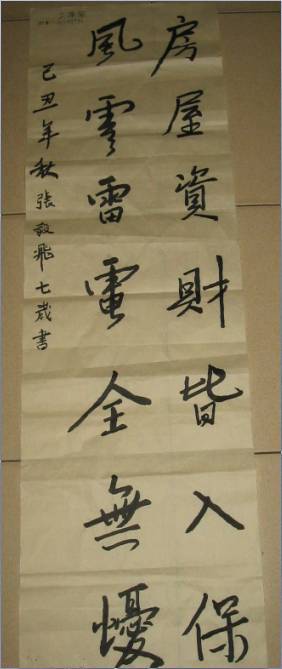 房屋資財皆入保
風雲雷電全無擾
己丑年秋張敬飛七歲書